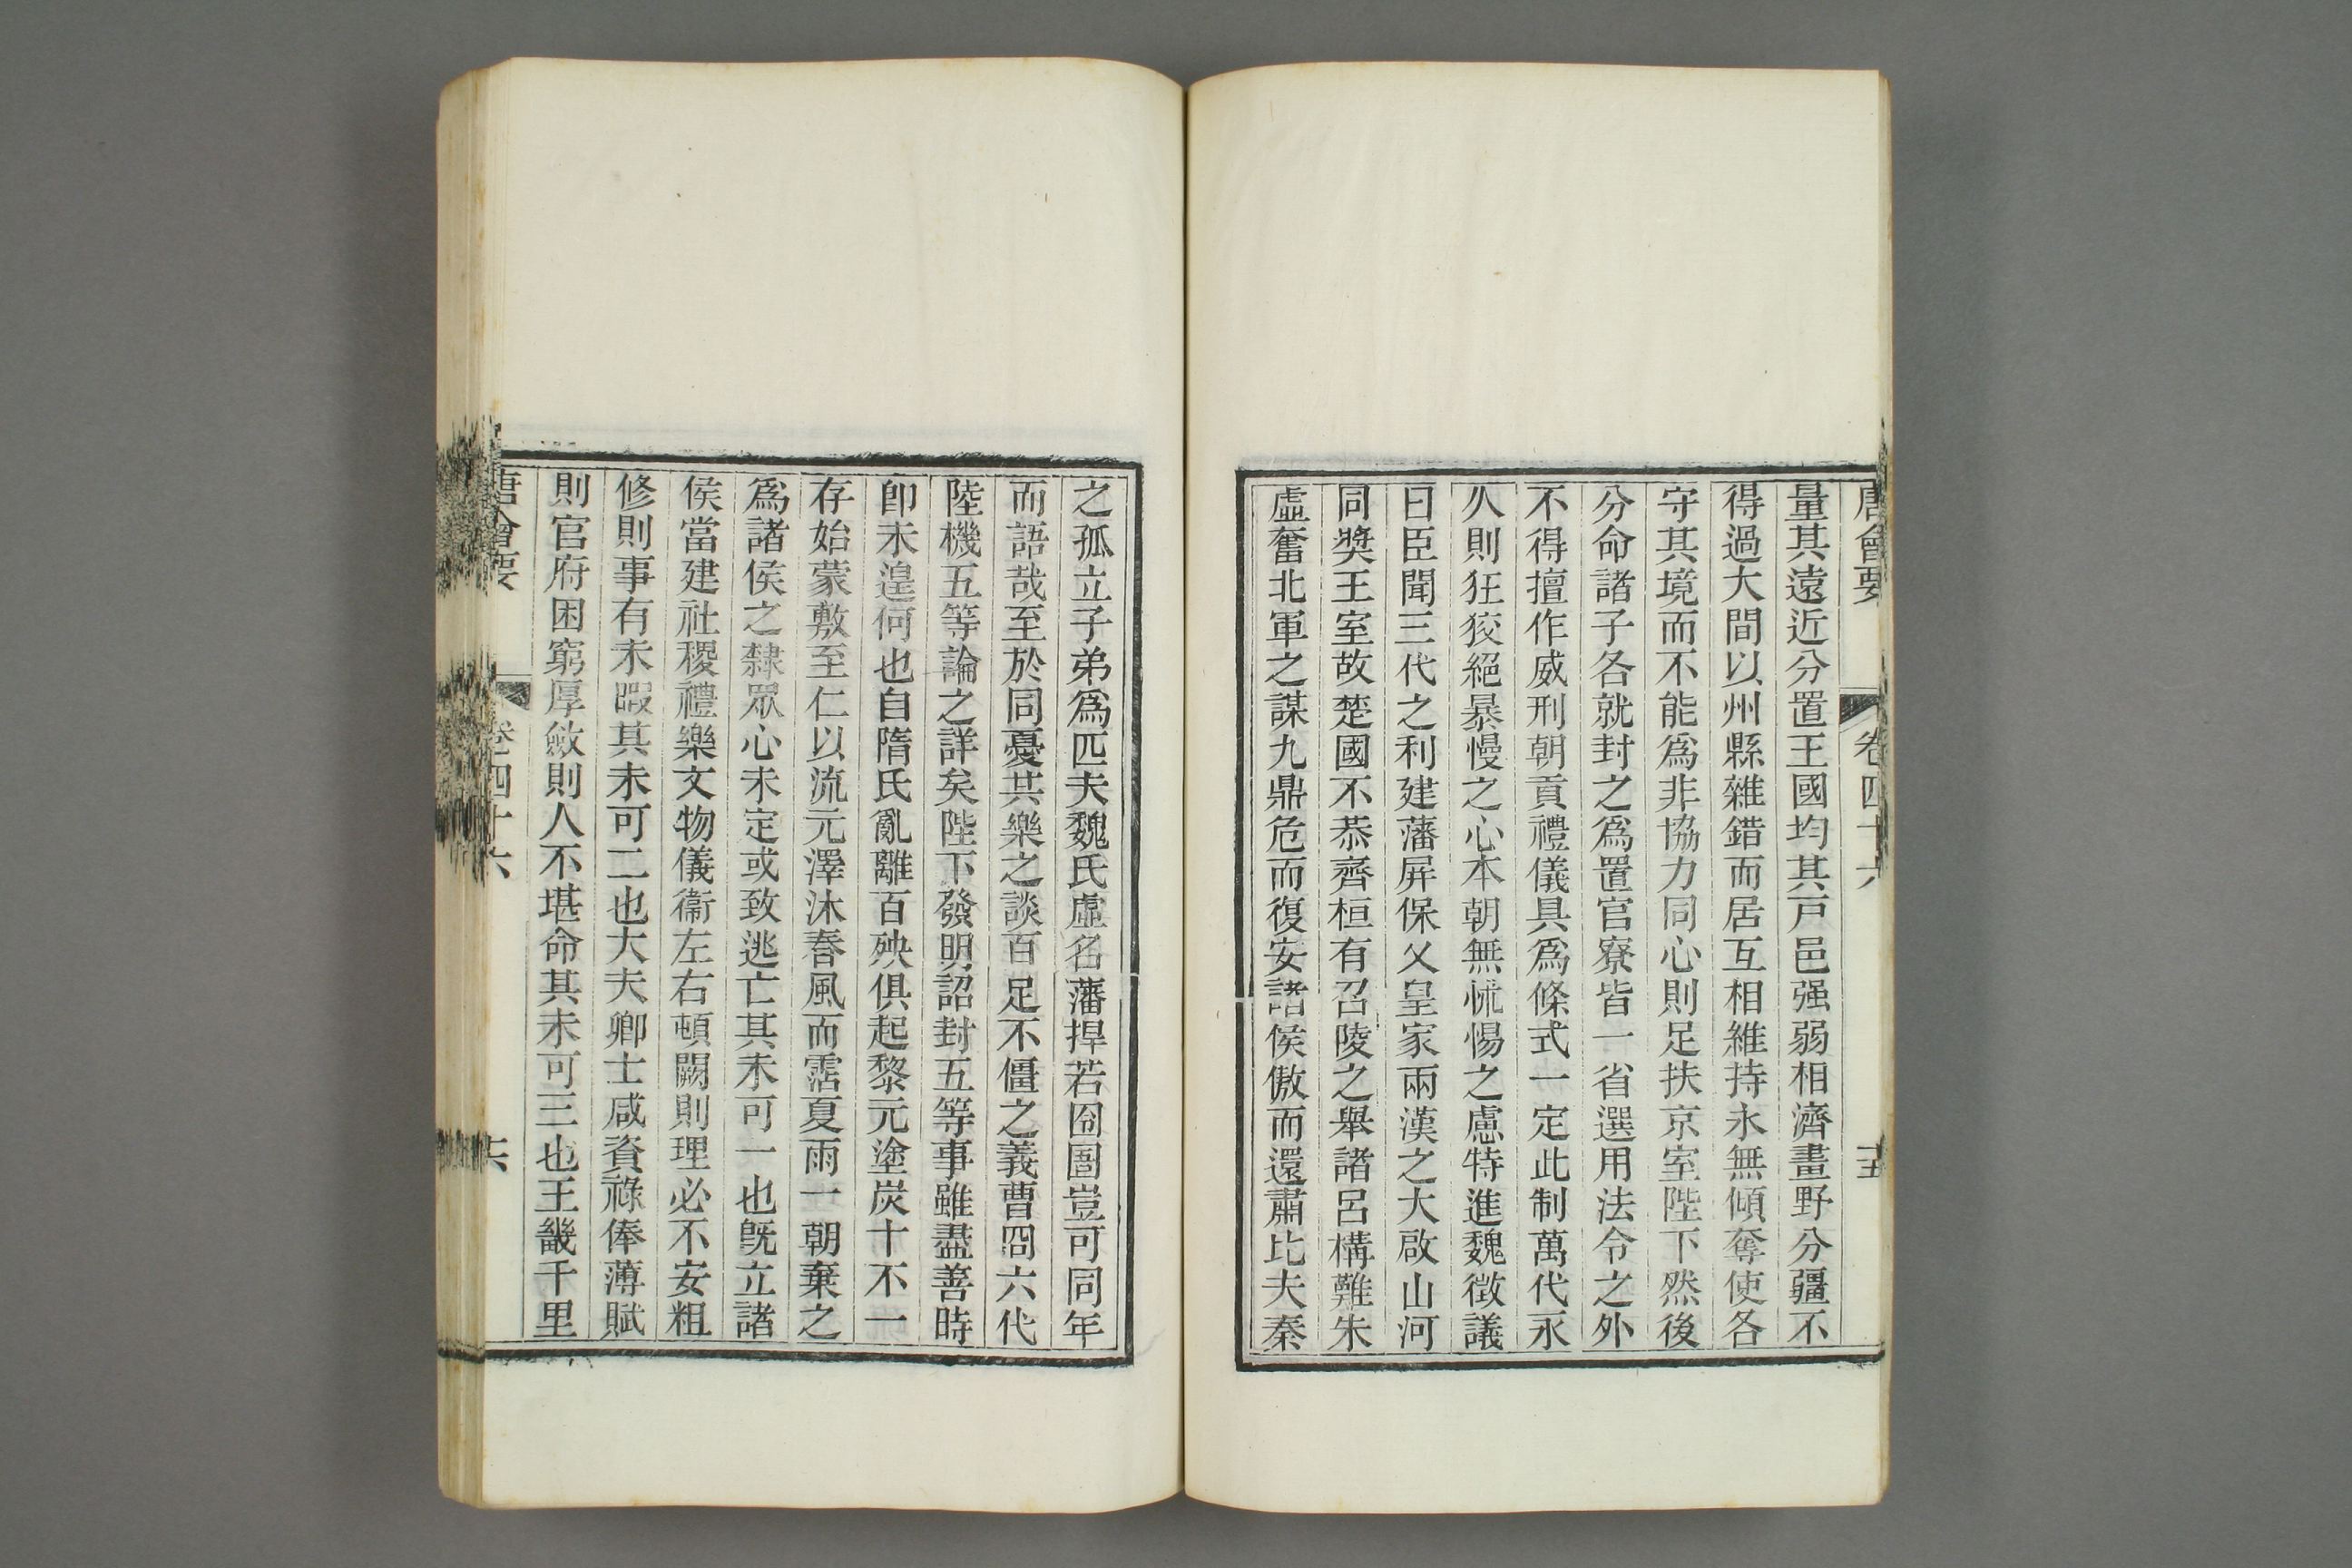 唐會要 卷四十六 十五
量其遠近分置王國均其戸邑强弱相濟畫野分疆不
得過大間以州縣雜錯而居互相維持永無傾奪使各
守其境而不能爲非協力同心則足扶京室陛下然後
分命諸子各就封之爲置官寮皆一省選用法令之外
不得擅作威刑朝貢禮儀具爲條式一定此制萬代永
久則狂狡絕暴慢之心本朝無怵惕之慮特進魏徵議
曰臣聞三代之利建藩屏保乂皇家兩漢之大啟山河
同獎王室故楚國不恭齊桓有召陵之舉諸呂構難朱
虛奮北軍之謀九鼎危而復安諸侯傲而還肅比夫秦
之孤立子弟爲匹夫魏氏虛名藩捍若囹圄豈可同年
而語哉至於同憂其樂之談百足不僵之義曹冏六代
陸機五等論之詳矣陛下發明詔封五等事雖盡善時
卽未遑何也自隋氏亂離百殃俱起黎元塗炭十不一
存始蒙敷至仁以流元澤沐春風而霑夏雨一朝棄之
爲諸侯之隸眾心未定或致逃亡其未可一也既立諸
侯當建社稷禮樂文物儀衞左右頓闕則理必不安粗
修則事有未暇其未可二也大夫卿士咸資祿俸薄賦
則官府困窮厚斂則人不堪命其未可三也王畿千里
唐會要 卷四十六 十六